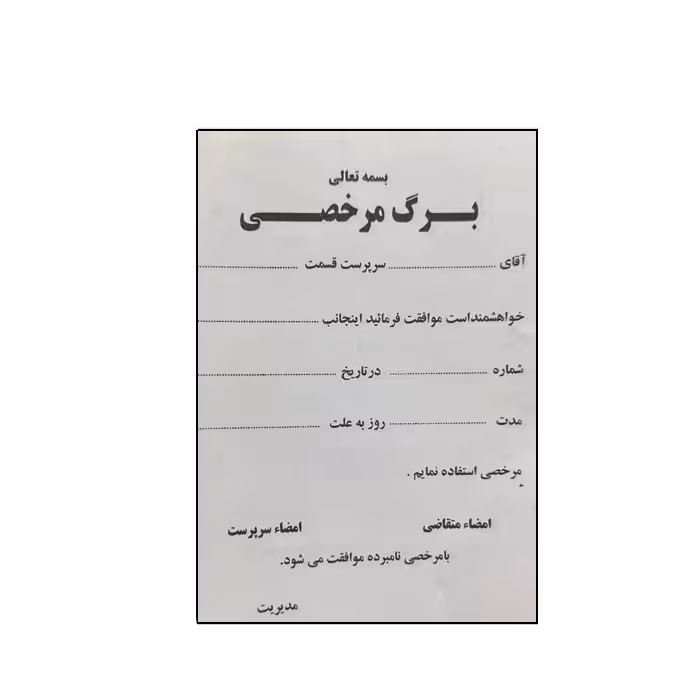 بسمه تعالی
بـــرگ مرخصـــی
آقای ........................ سرپرست قسمت ........................
خواهشمنداست موافقت فرمائید اینجانب ........................
شماره ........................ درتاریخ ........................
مدت ........................ روز به علت ........................
مرخصی استفاده نمایم .
امضاء متقاضی امضاء سرپرست
بامرخصی نامبرده موافقت می شود.
مدیریت